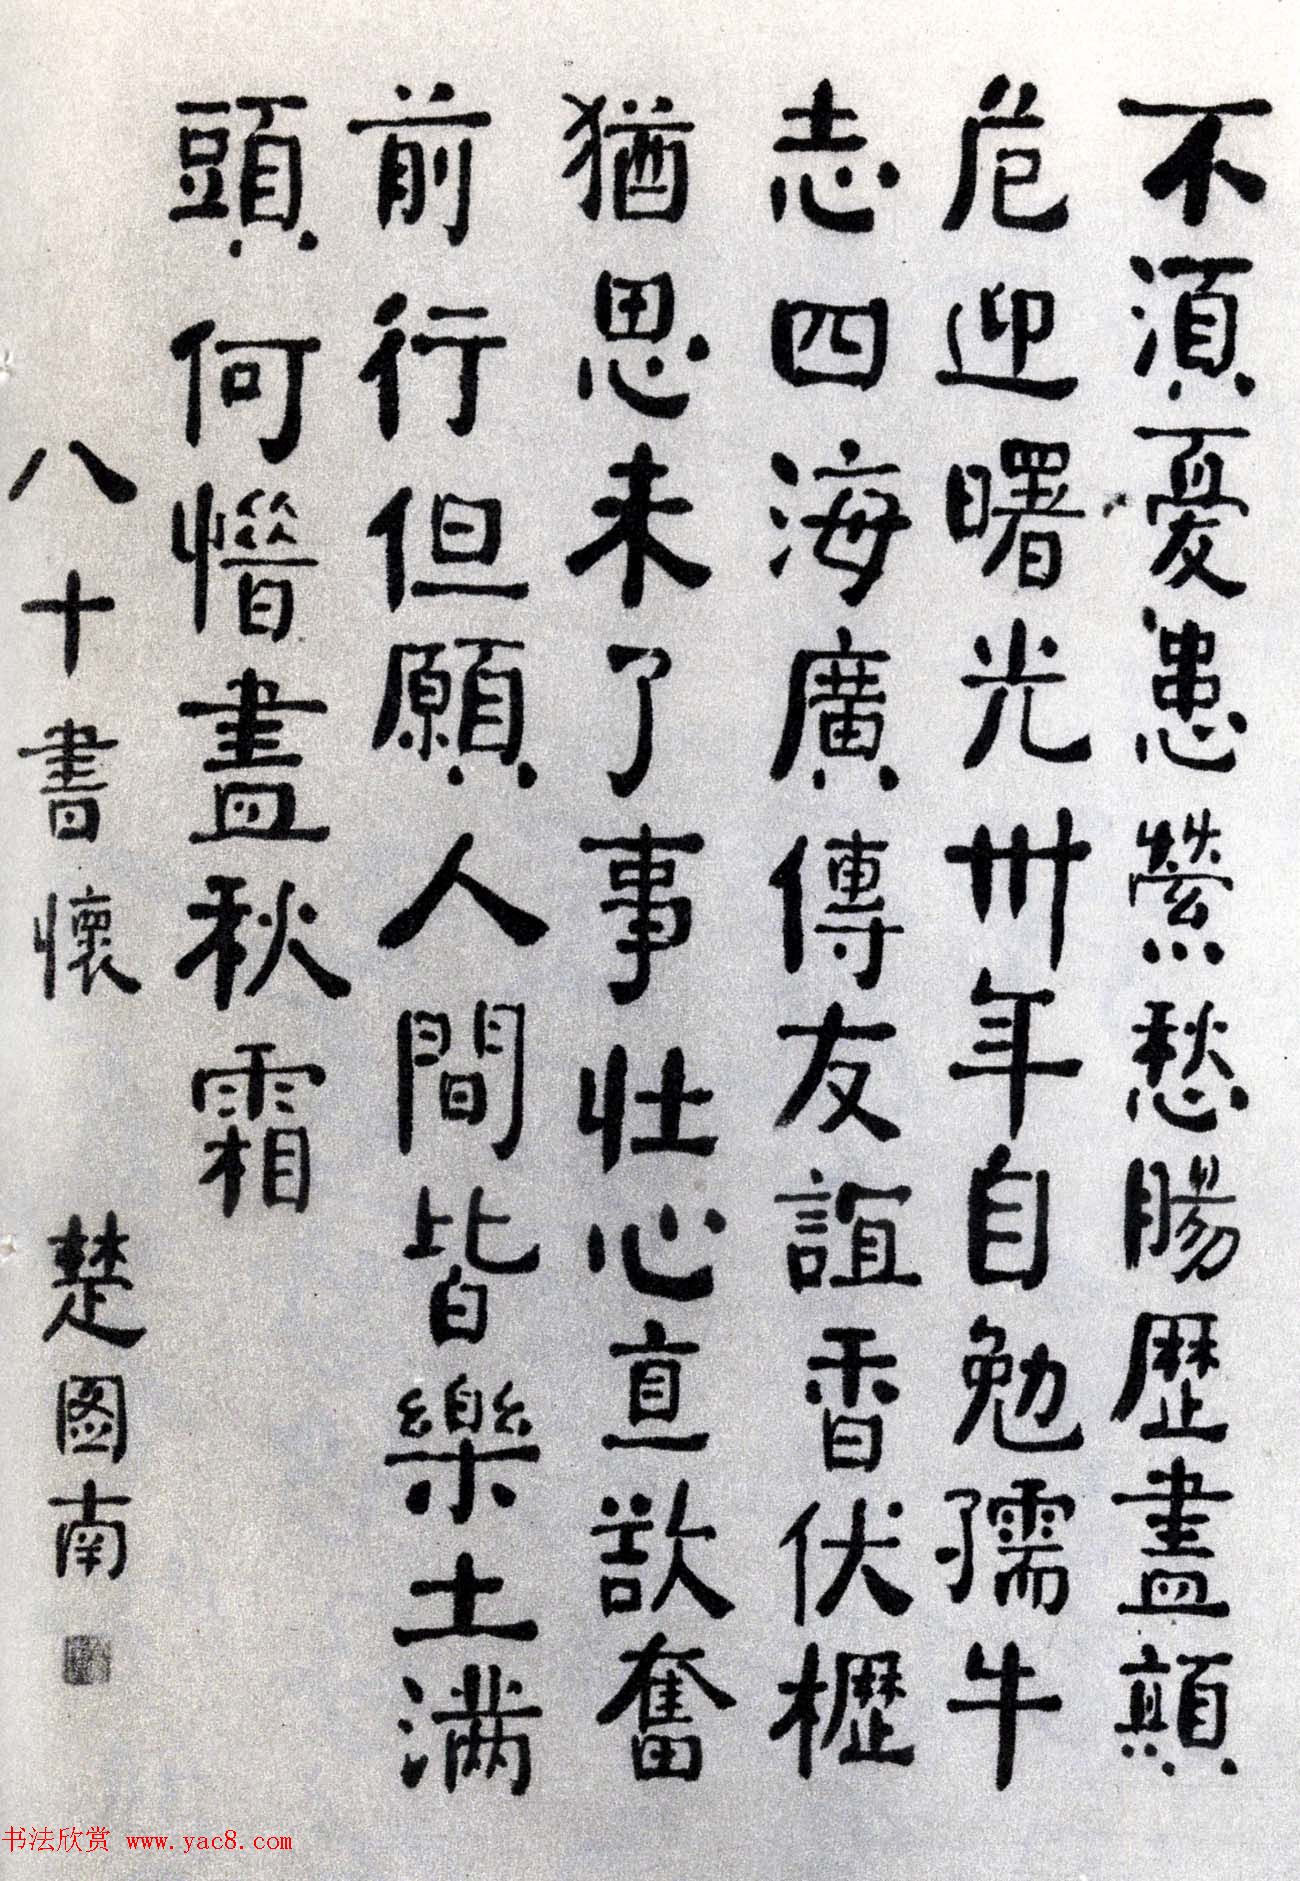 不須憂患縈愁腸歷盡顛
危迎曙光卅年自勉孺牛
志四海廣傳友誼香伏櫪
猶思未了事壯心直欲奮
前行但願人間皆樂土滿
頭何惜盡秋霜
八十書懷 楚圖南
书法欣赏 www.yac8.com